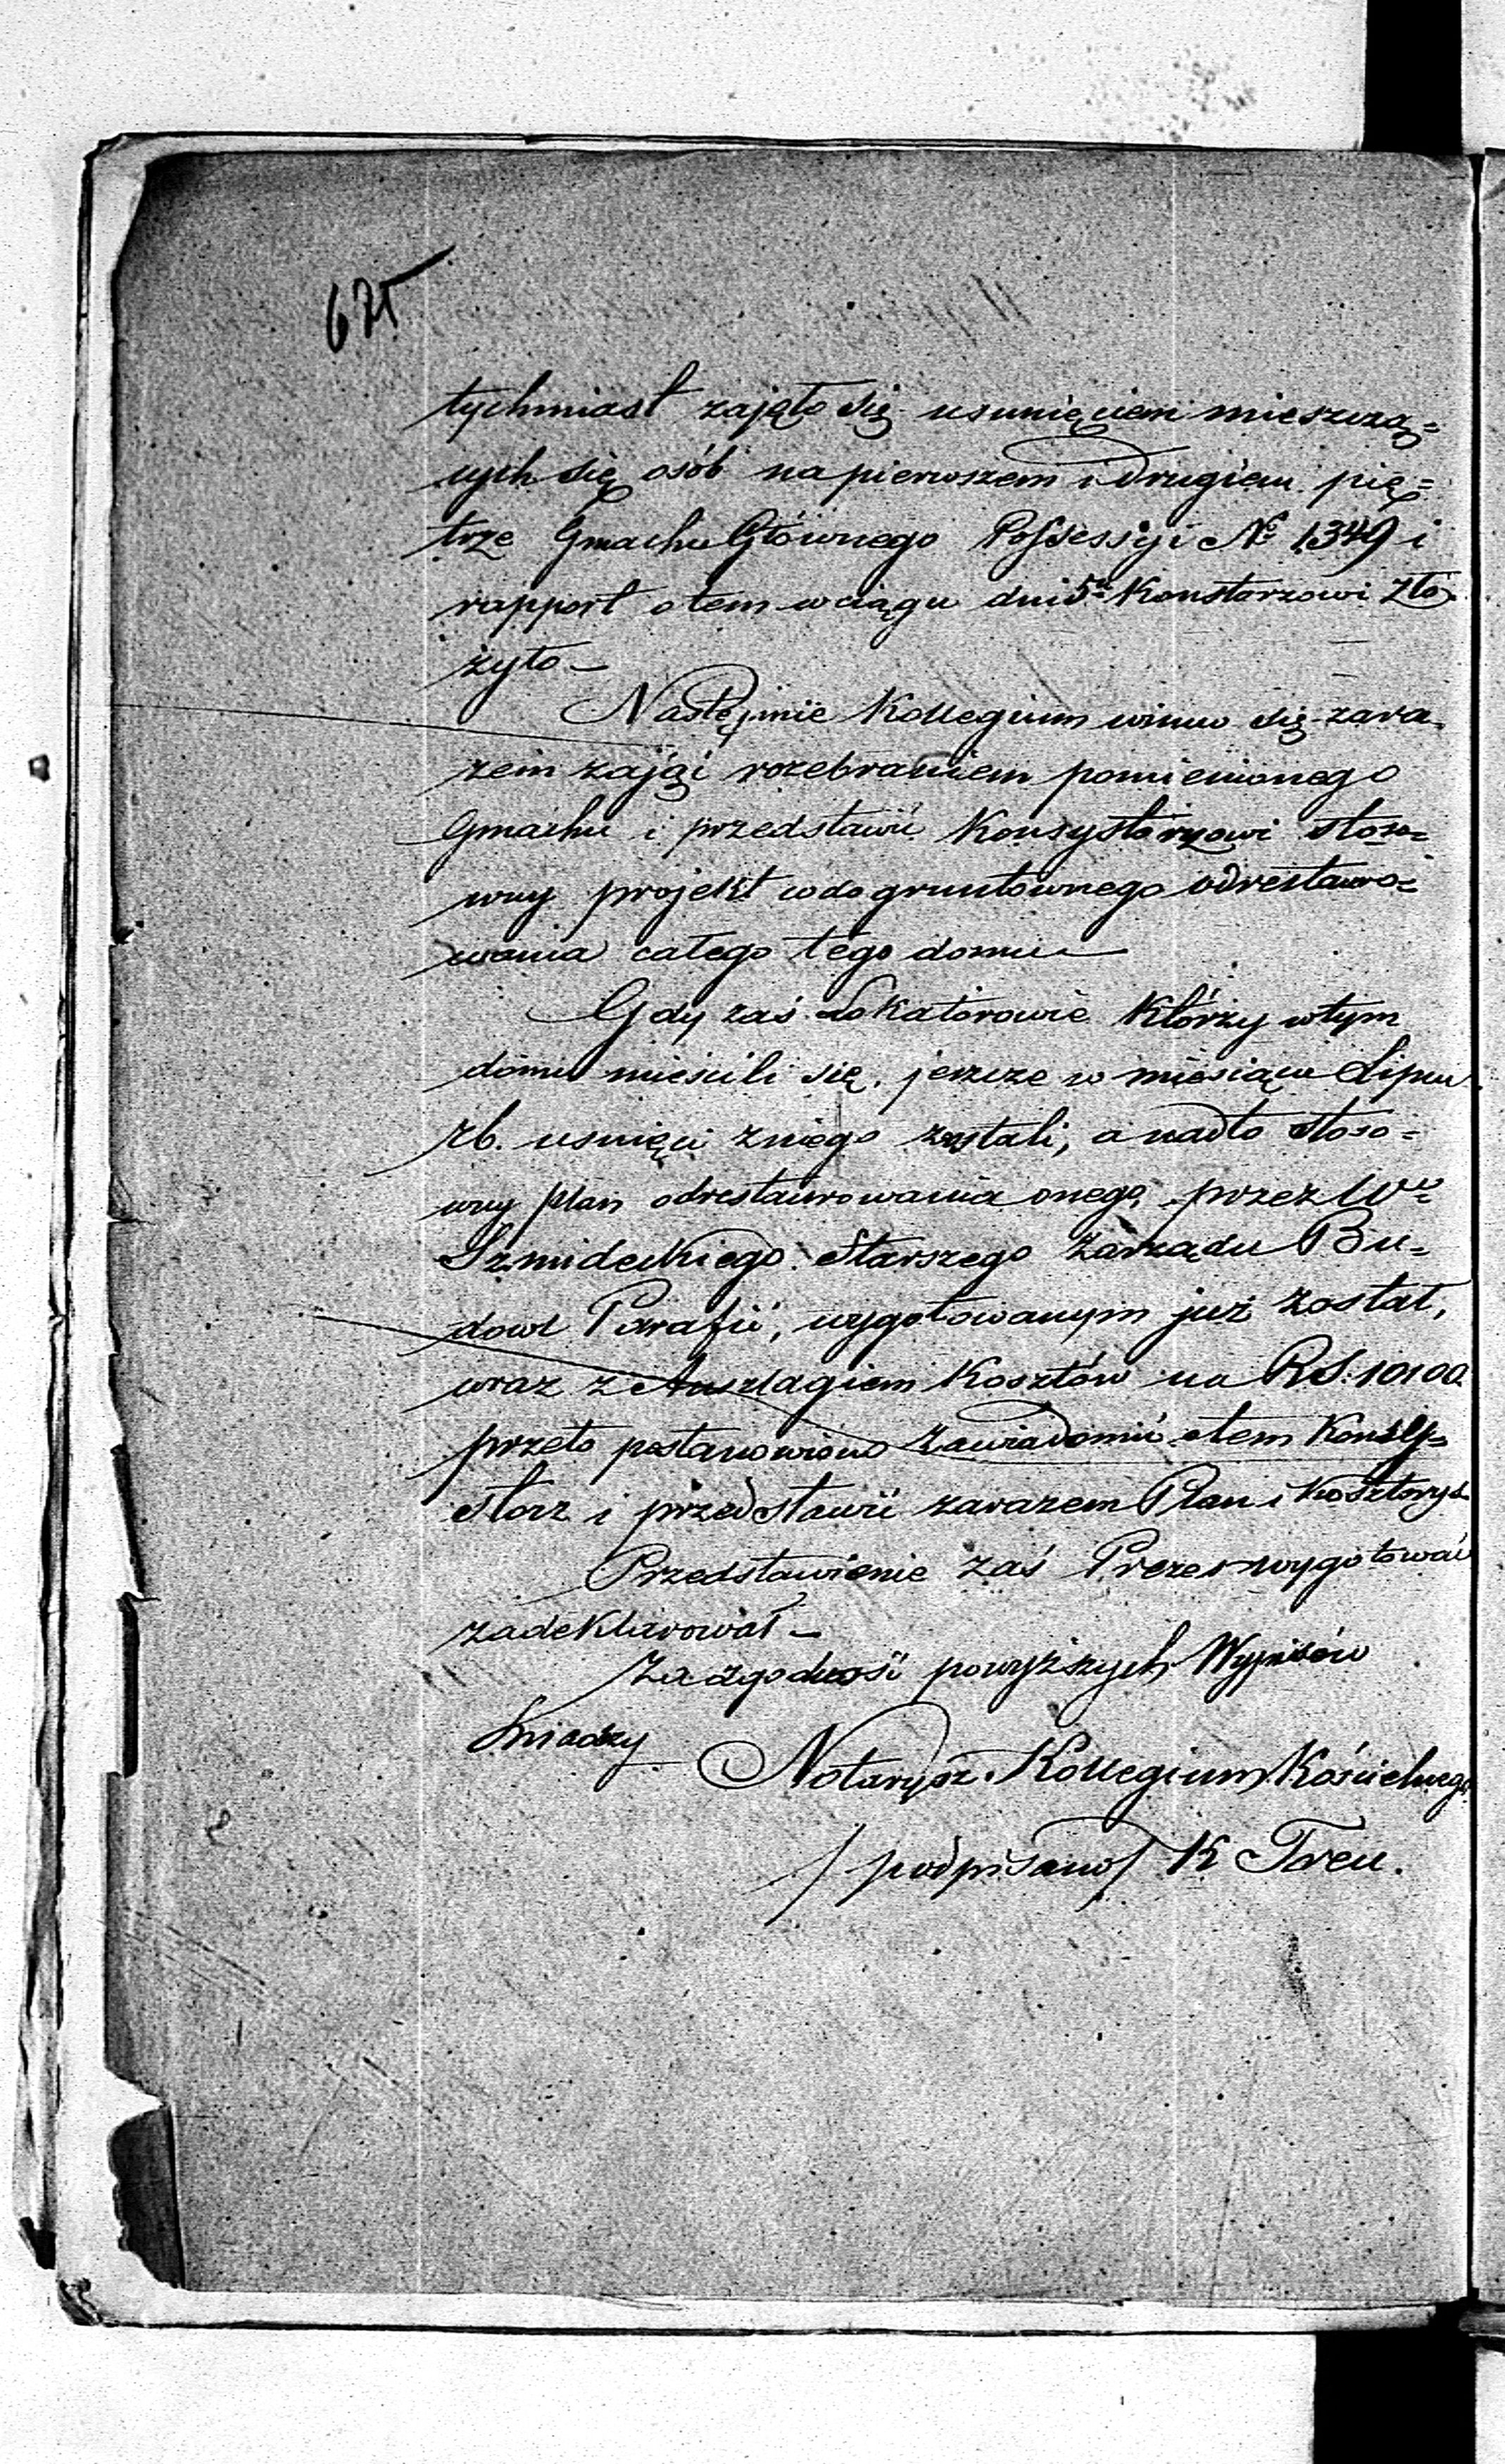 625
tychmiast zajęło się usunięciem mieszczą=
cych się osób na pierwszem i drugiem pię=
trze Gmachu Głównego Possessyi № 1349 i
rapport o tem w ciągu dni 5u Konstorzowi zło
żyło –
Następnie Kollegium winno się zara
zem zająć rozebraniem pomienionego
Gmachu i przedstawić Konsystorzowi stoso=
wny projekt co do gruntownego odrestauro=
wania całego tego domu –
Gdy zaś Lokatorowie którzy w tym
domu mieścili się, jeszcze w miesiącu Lipcu
rb. usunięci z niego zostali, a nadto stoso=
wny plan odrestaurowania onego, przez Wo
Szmideckiego Starszego Zarządu Bu=
dowl Parafii, wygotowanym już został,
wraz z Anszlagiem Kosztów na RS. 10100
przeto postanowiono zawiadomić o tem Konsy=
storz i przedstawić zarazem Plan i Kosztorys
Przedstawienie zaś Prezes wygotować
zadeklarował –
Za zgodność powyższych Wypisów
świadczy
Notaryusz Kollegium Kościelnego
/ podpisano / K Treu.